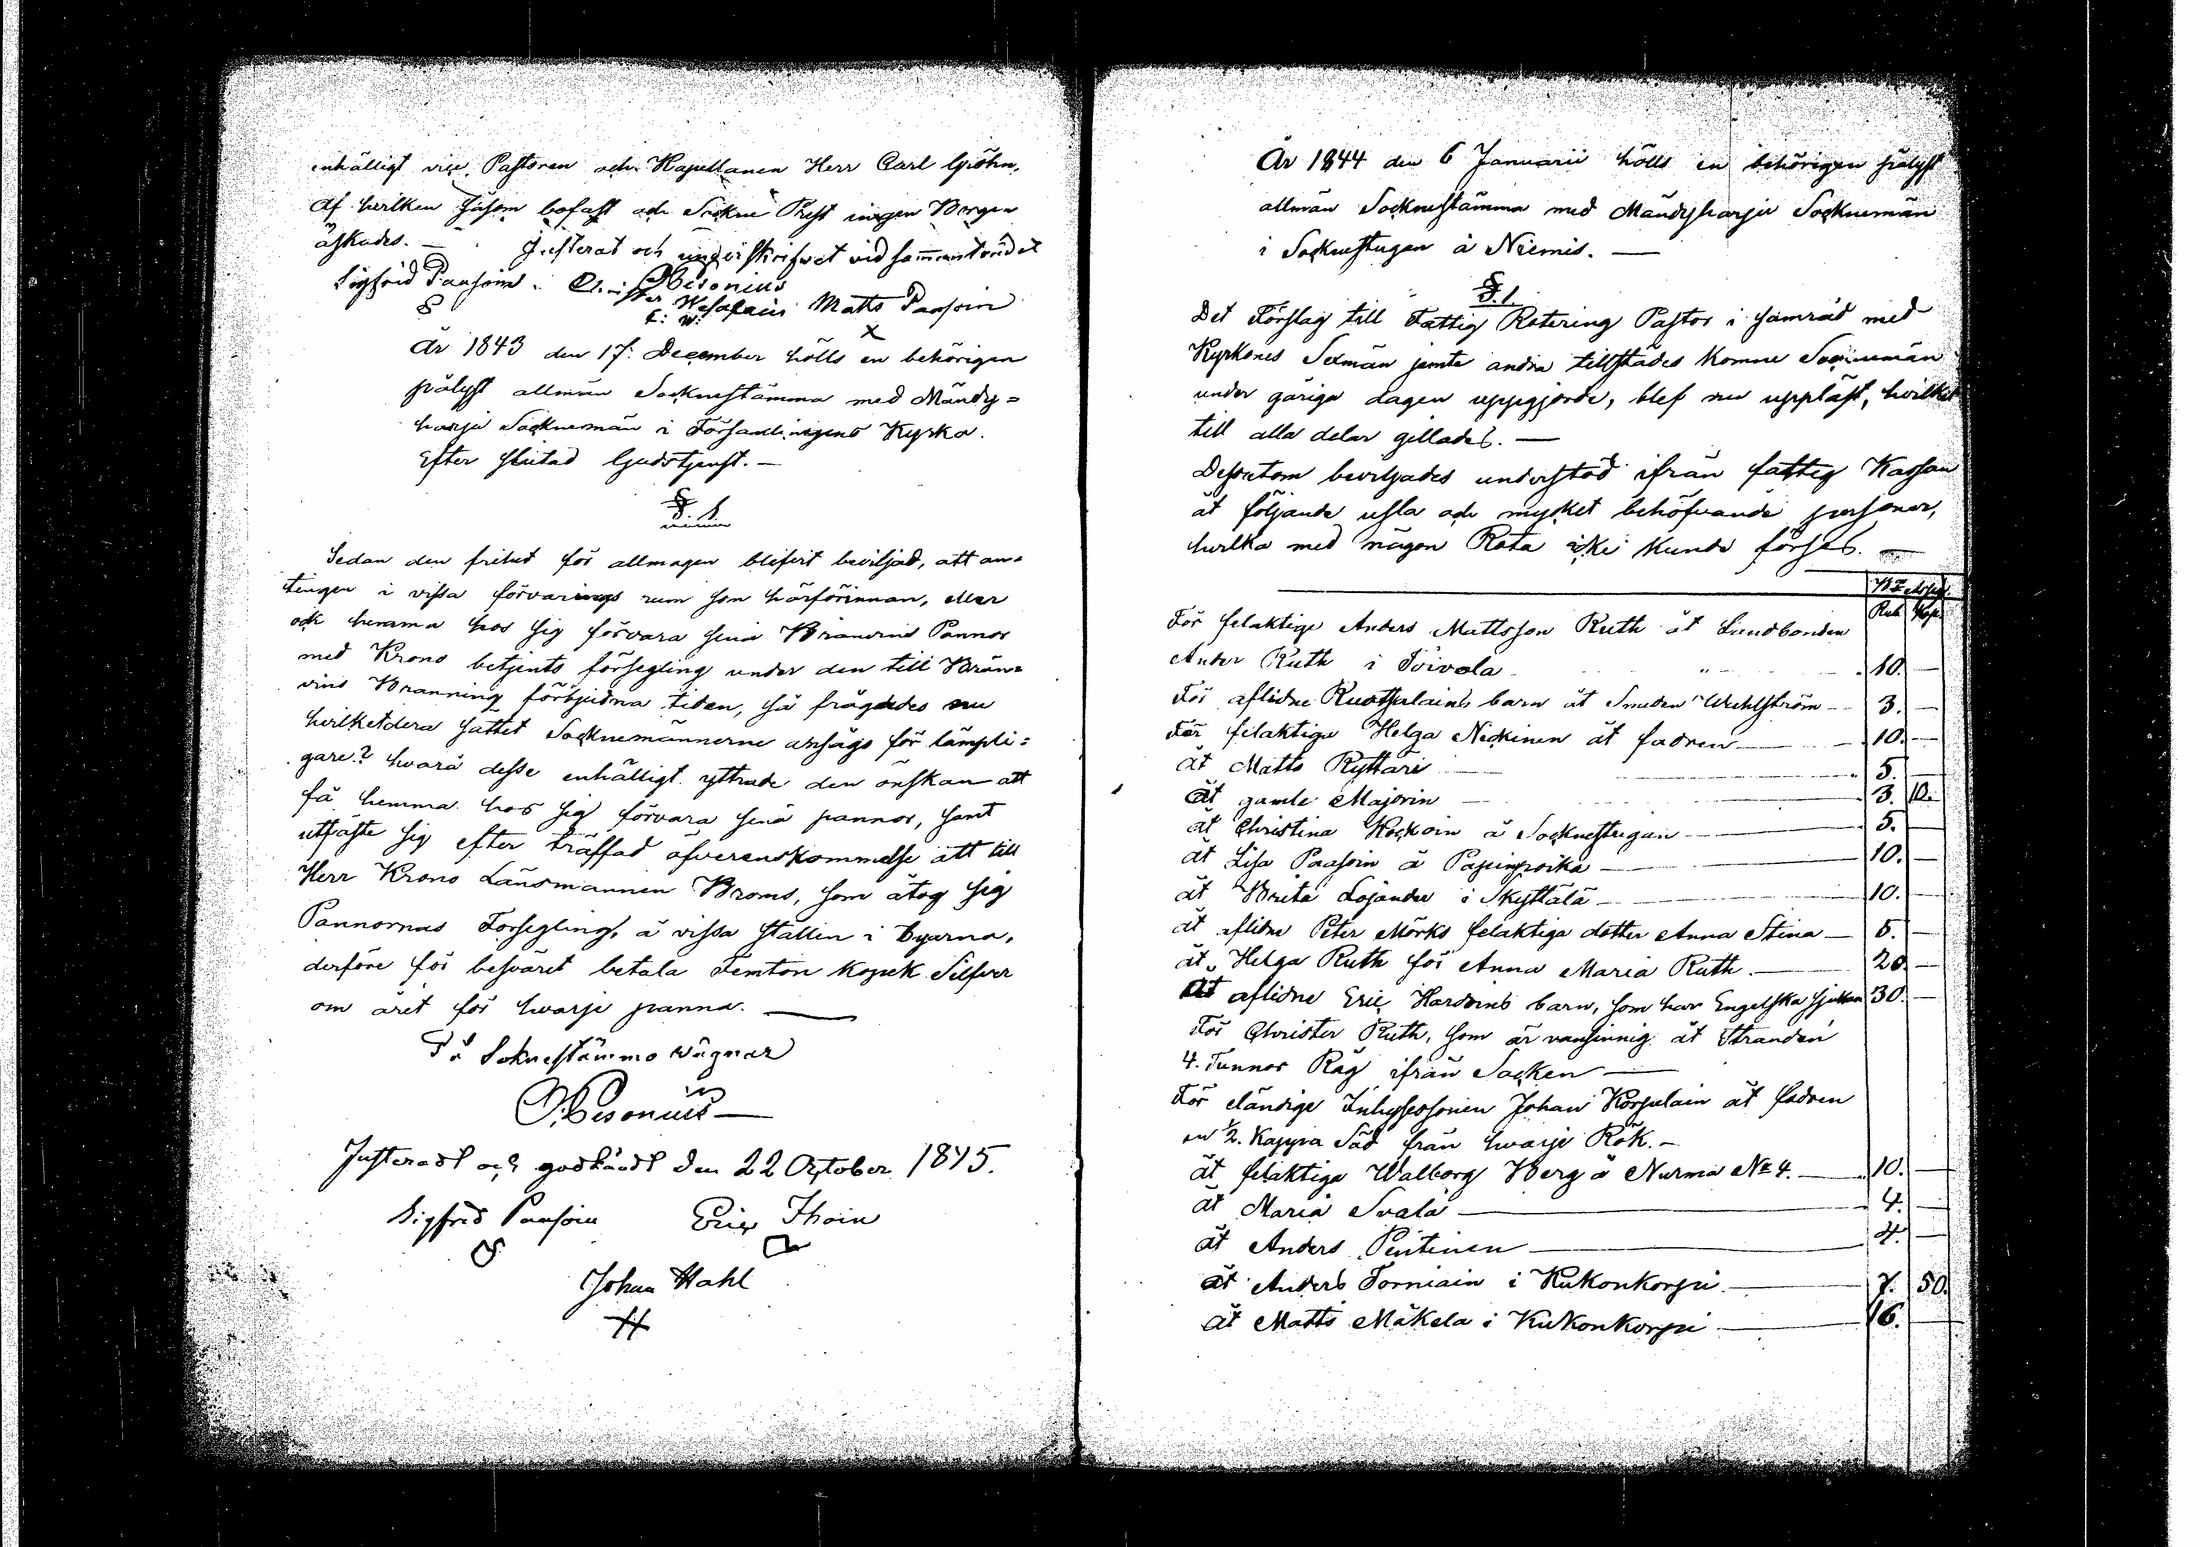 enhälligt vice Pastoren och Kapellanen Herr Carl Gröhn,
Af hvilken såsom bofast och Sockne Prest ingen Borgen
äskades. —
Justerat och underskrifvet vid sammanträdet
Sigfrid Paasoin. Christer Matts Paasoin
År 1843 den 17: December hölls en behörigen
pålyst allmän Socknestämma med Mändy=
harju Socknemän i Församlingens Kyrka.
Efter slutad Gudstjenst. —
§. 1.
Sedan den frihet för allmogen blifvit beviljad, att an=
tingen i vissa förvarings rum som härförinnan, eller
ock hemma hos sig förvara sina Bränvins Pannor
med Krono betjents försegling under den till Brän=
vins Branning förbjudna tiden, så frågades nu
hvilketdera sättet Socknemännerne ansågo för lämpli=
gare? hvarå desse enhälligt yttrade den önskan att
få hemma hos sig förvara sina pannor, samt
utfäste sig efter träffad öfverenskommelse att till
Herr Krono Länsmannen Broms, som åtog sig
Pannornas Försegling, å vissa ställen i byarna,
derföre för besväret betala Femton Kopek Silfver
om året för hvarje panna. —
På Soknestämmo vägnar
Justeradt och godkändt den 22 October 1845.
Sigfrid Paasoin Eric Ihoin
Johan Hahl
År 1844 den 6 Januarii hölls en behörigen pålyst
allmän Socknestämma med Mändyharju Socknemän
i Socknestugan å Niemis. —
§. 1.
Det Förslag till Fattig Rotering Pastor i samråd med
Kyrkones Sexmän jemte andra tillstädes komne Socknemän
under gårige dagen uppgjorde, blef nu uppläst, hvilket
till alla delar gillades. —
Dessutom beviljades understöd ifrån fattig Kassan
åt följande usla och mycket behöfvande personer,
hvilka med någon Rota icke kunde förses. —
Rub Kop
För felaktige Anders Mattsson Ruth åt Landbonden
Ander Ruth i Toivola 10. —
För aflidne barn åt Smeden Wahlström — 3. —
För felaktiga Helga Nickinen åt fadren — 10. —
åt Matts Ryttäri — 5. —
åt gamle Majorin — 3. 10.
åt Christina Kockoin å Socknestugan — 5. —
åt Lisa Paasoin å Papinpoika — 10. —
åt Brita Lojander i Skyttälä — 10. —
åt aflidne Peter Mörks felaktiga dotter Anna Stina — 5. —
åt Helga Ruth för Anna Maria Ruth. — 20. —
åt aflidne Eric Hardoins barn, som har Engelska sjukan 30. —
För Christer Ruth, som är vansinnig åt Stranden
4. Tunnor Råg ifrån Socken —
För eländige Inhysesonen Johan Korpelain åt fadren
en ½. Kappa Säd från hvarje Rök. —
åt felaktiga Walborg Berg å Nurma No 4. — 10. —
åt Maria Svala — 4. —
åt Anders Pentinen — 4. —
åt Anders Torniain i Kukonkorpi. — 7. 50.
åt Matts Mäkela i Kukonkorpi — 16. —